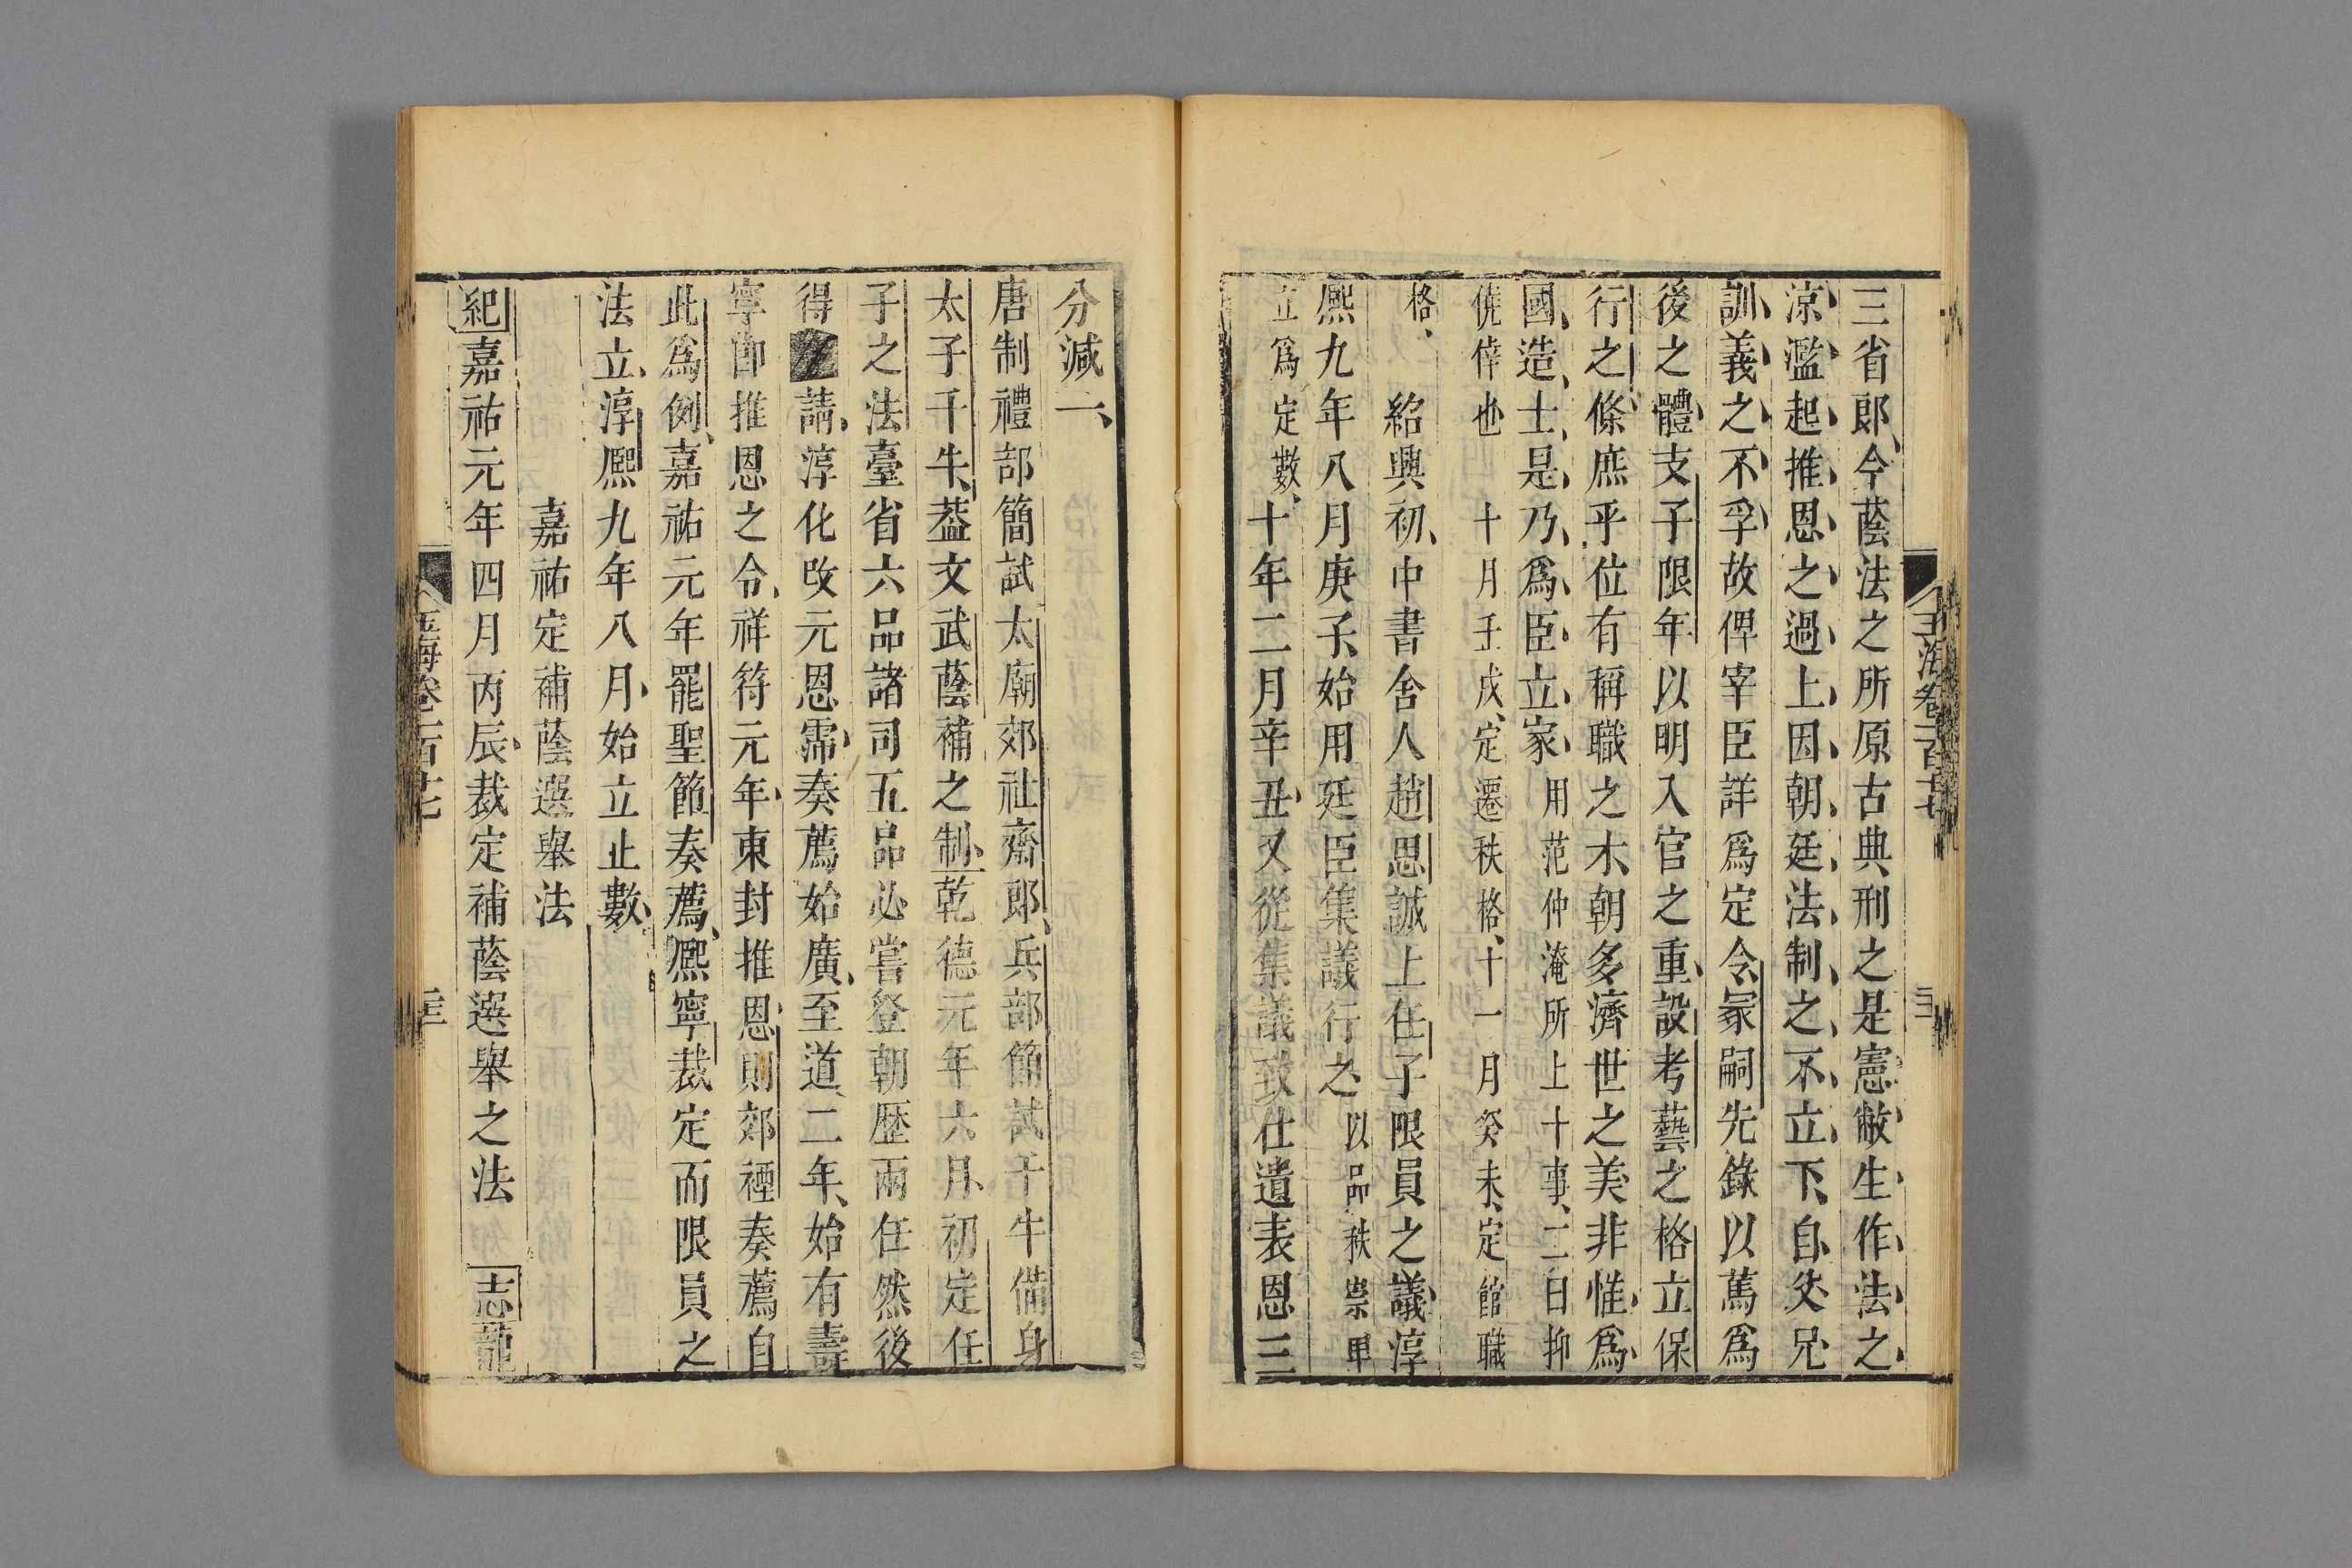 三省郎今蔭法之所原古典刑之是憲敝生作法之
涼濫起推恩之過上因朝廷法制之不立下自父兄
訓義之不孚故俾宰臣詳爲定令冢嗣先錄以篤爲
後之體支子限年以明入官之重設考藝之格立保
行之條庶乎位有稱職之木朝多濟世之美非惟爲
國造士是乃爲臣立家用范仲淹所上十事二曰抑
僥倖也 十月壬戌定遷秩格十一月癸未定館職
格 紹興初中書舍人趙思誠上任子限員之議淳
熙九年八月庚子始用廷臣集議行之以品秩崇卑
立爲定數十年二月辛丑又從集議致仕遺表恩三
分減一
唐制禮部簡試太廟郊社齋郎兵部簡試千牛備身
太子千牛葢文武蔭補之制乾德元年六月初定任
子之法臺省六品諸司五品必嘗登朝歷兩任然後
得請淳化改元恩霈奏薦始廣至道二年始有壽
寧節推恩之令祥符元年東封推恩則郊禋奏薦自
此爲例嘉祐元年罷聖節奏薦熙寧裁定而限員之
法立淳熙九年八月始立止數
嘉祐定補蔭選舉法
紀嘉祐元年四月丙辰裁定補蔭選舉之法 志範
玉海卷一百十七
玉海卷一百十七